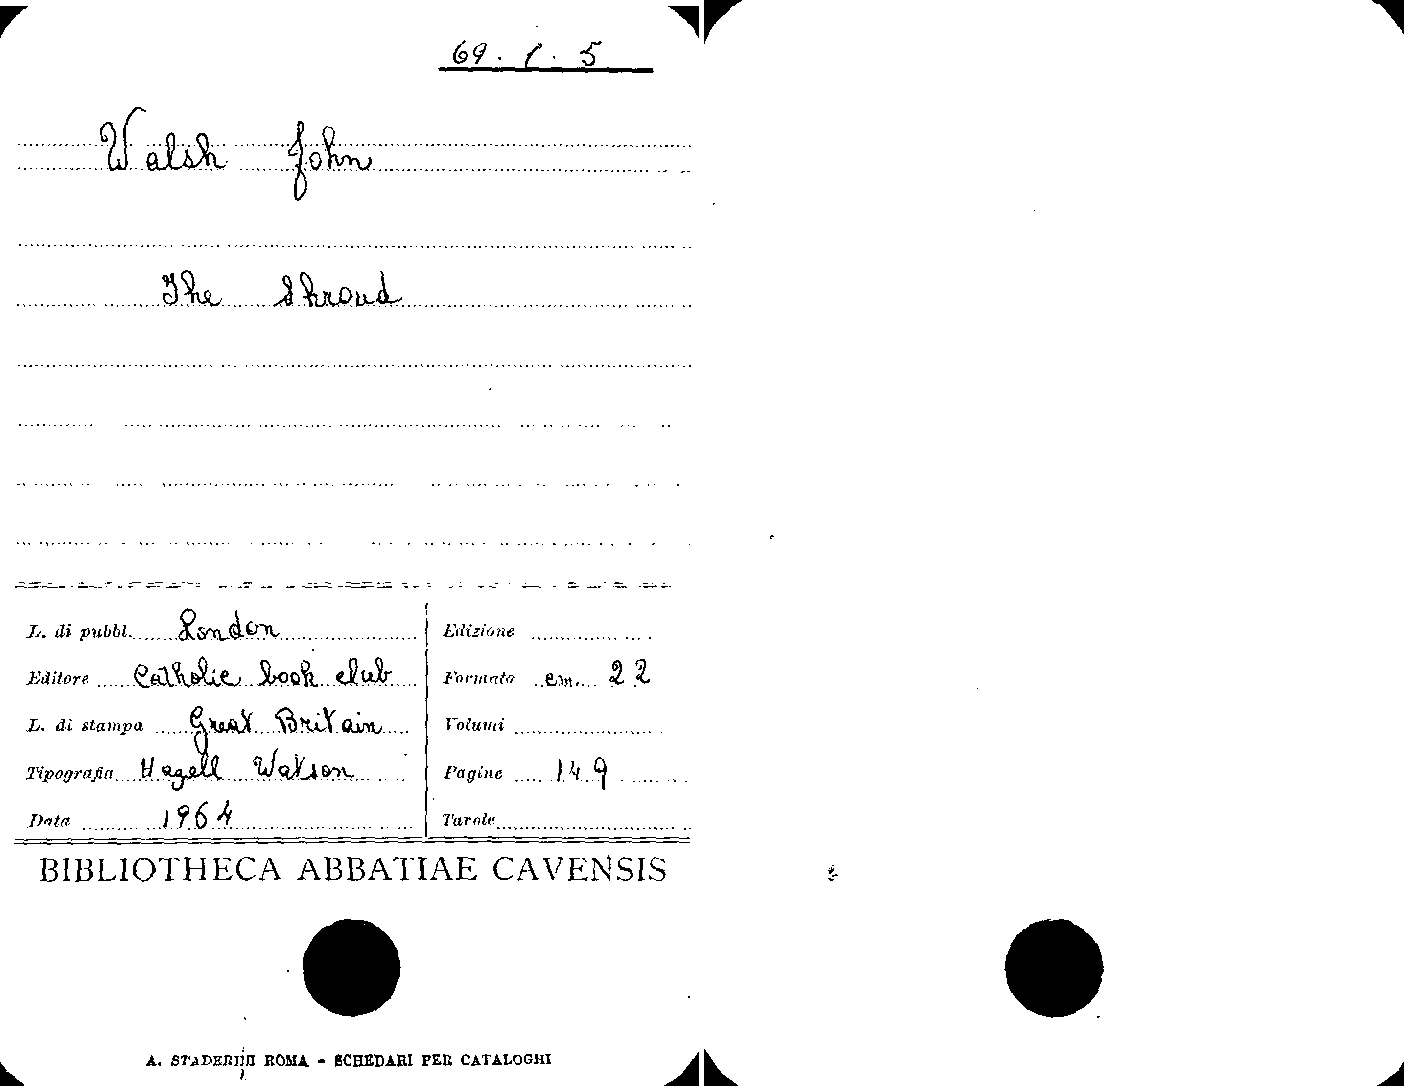 69. 1. 5
Walsh John
The Shroud
L. di pubbl. London
Editore Catholic book club
L. di stampa Great Britain
Tipografia Hazell Watson
Data 1964
Edizione
Formato cm. 22
Volumi
Pagine 149
Tavole
BIBLIOTHECA ABBATIAE CAVENSIS
A. STADERINI ROMA - SCHEDARI PER CATALOGHI